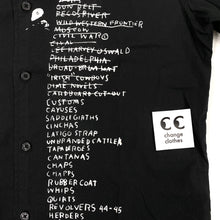 GUN BELT
PECOS RIVER
WILD WESTERN FRONTIER
MUSTON
CIVIL WAR
LEE HARVEY OSWALD
PHILADELPHIA
BROAD BRIM HAT
"IRISH" COWBOYS
DIME NOVELS
CARDBOARD CUT-OUT
CUSTOMS
CAYUSES
SADDLE GIRTHS
CINCHAS
LATIGO STRAP
UNBRANDED CATTLE
TAPADEROS
CANTANAS
CHAPS
CHAPPS
RUBBER COAT
WHIPS
QUIRTS
REVOLVERS 44-45
HERDERS
change
clothes